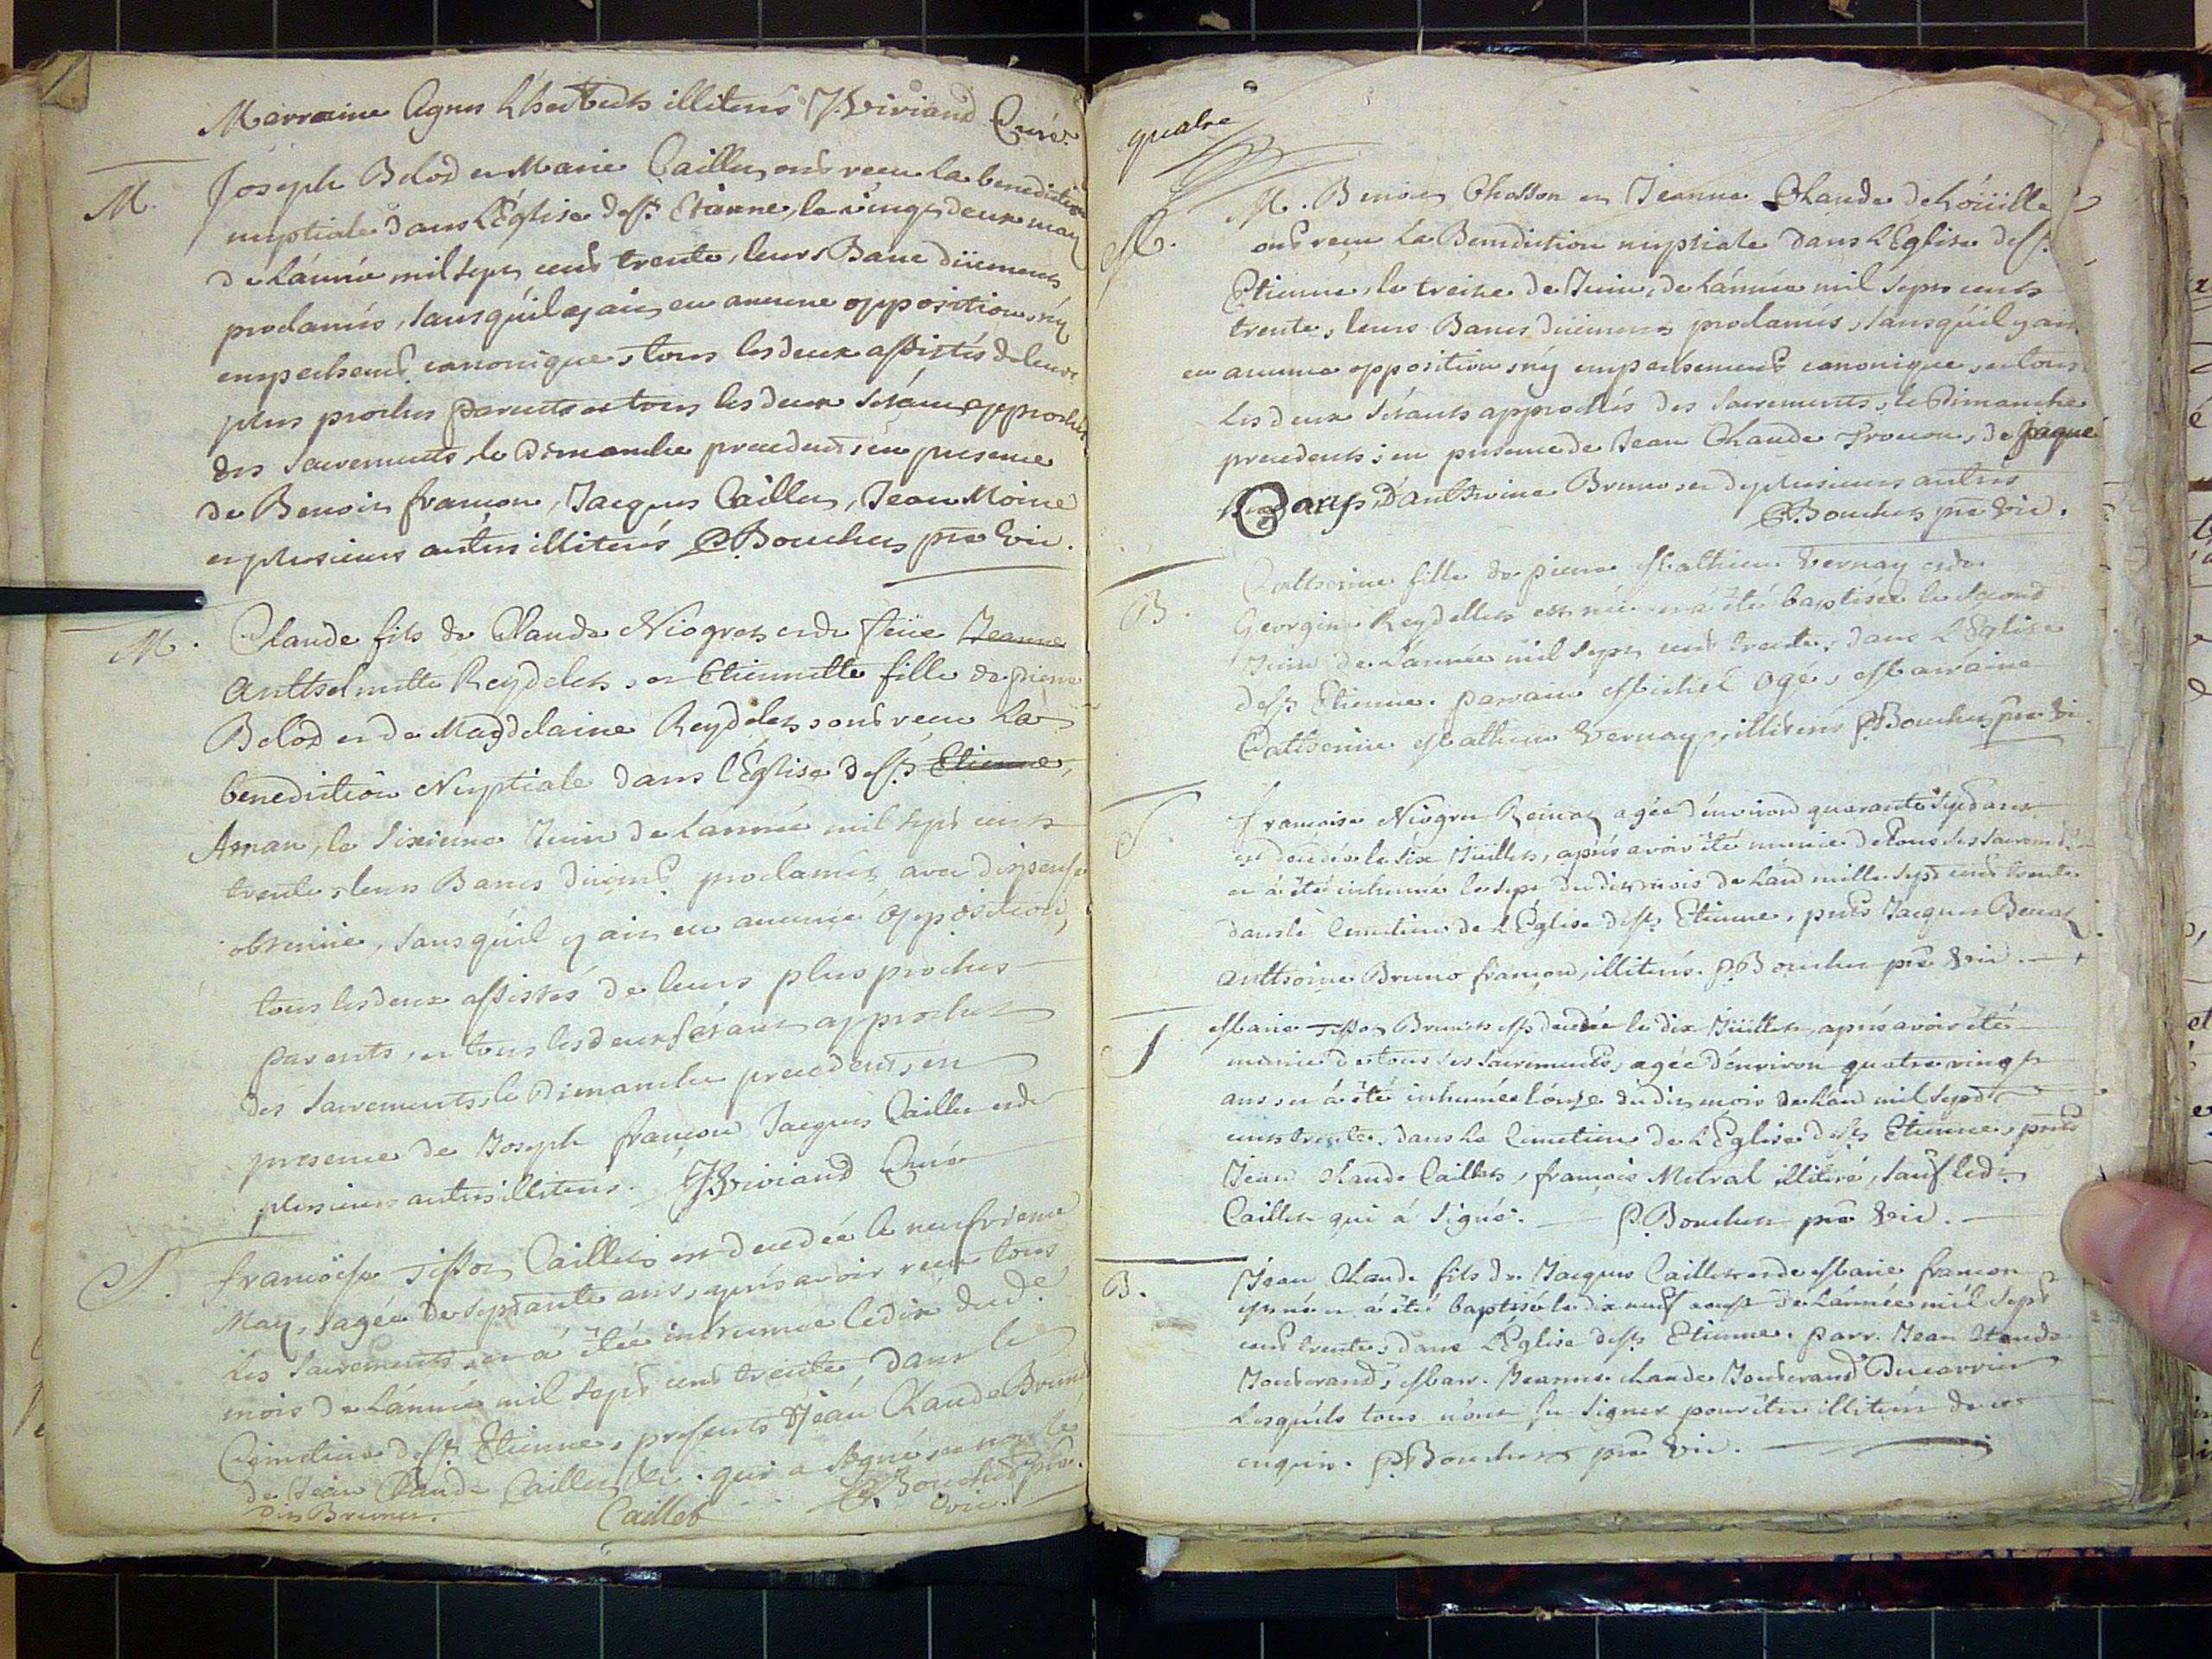 Marraine Agnes illiterés J. Viviand Curé.
M. Joseph Belod et Marie Caillet ont receu la benediction
nuptiale dans L'Église de St. Etienne, le vingt deux may
de L'année mil sept cent trente, leurs Banc düement
proclamés, sans qu'il y ait eu aucune opposition, ny
empechemt. canonique, tous les deux assistés de leurs
plus proches parents et tous les deux s'étant approchés
des sacrements, le Dimanche precedent, en presence
de Benoit françon, Jacques Caillet, Jean Moine
et plusieurs autres illiterés P. Bouchet pre vic.
M. Claude fils de Claude Niogret et de feüe Jeanne
Anthelmette Reydelet, et Etiennette fille de pierre
Belod et de Magdelaine Reydelet, ont receu la
benediction Nuptiale dans l'Église de St. Etienne,
Aman, le sixieme Juin de Lannée mil sept cents
trente, leurs Bancs düemt. proclamés avec dispense
obtenüe, sans qu'il y ait eu aucune opposition,
tous les deux assistés de leurs plus proches
parents, et tous les deux s'étant approchez
des sacrements, le Dimanche precedent, en
presence de Joseph françon Jacques Caillet et de
plusieurs autres illiterés. J. Viviand Curé
S. françoise Tissot Caillet est decedée le neufvieme
May, agée de septante ans, après avoir receu tous
les sacrements, et a été inhumée le dix dud.
mois de L'année mil sept cent trente, dans le
Cimetiere de St. Etienne, presents Jean Claude Brunet
de Jean Claude Caillet qui a signé et non le
dit Brunet. Caillet P. Bouchet pre.
vic.
quatre
M. M. Benoit Chosson et Jeanne Claude de
ont receu la Benediction nuptiale dans L'Église de St.
Etienne, le treize de Juin, de L'année mil sept cents
trente, leurs Bancs düement proclamés, sans qu'il y ait
eu aucune opposition, ny empechement canonique, et tous
les deux s'étants approchés des sacrements, le Dimanche
precedents, en presence de Jean Claude de Jaque
D'anthoine Bruno et de plusieurs autres
P. Bouchet pre vic.
B. Catherine fille de pierre Mathieu Vernay et de
Georgine Reydellet est née et a été baptisée le second
Juin de L'année mil sept cent trente, dans L'Église
de St. Etienne. parrain Michel Ogé, Marraine
Catherine Mathieu Vernay, illiterés P. Bouchet pre vic.
S. francoise Niogret agée d'environ quarante sept ans
est decedée le six Jüillet, après avoir été munie de tous ses sacremts.
et a été inhumée le sept du dit mois de L'an mille sept cent trente
dans le Cimetiere de L'Église de St. Etienne, pnts Jacques
Anthoine Bruno françon, illiterés. P. Bouchet pre vic.
S Marie Tissot Brunet est decedée le dix Jüillet, après avoir été
munie de tous ses sacrements, agée d'environ quatre vingt
ans, et a été inhumée l'onze du dit mois de L'an mil sept
cents trente, dans le Cimetiere de L'Église de St. Etienne, pnts
Jean Claude Caillet, francois Mitral illiteré, sauf ledt.
Caillet qui a signé. P. Bouchet pre vic.
B. Jean Claude fils de Jacques Caillet et de Marie francon
est né et a été baptisé le dix neuf aoust de L'année mil sept
cent trente, dans L'Église de St. Etienne. parr. Jean Claude
Marr. Jeanne claude
Lesquels tous n'ont su signer pour être illiterés de ce
enquis. P. Bouchet pre vic.